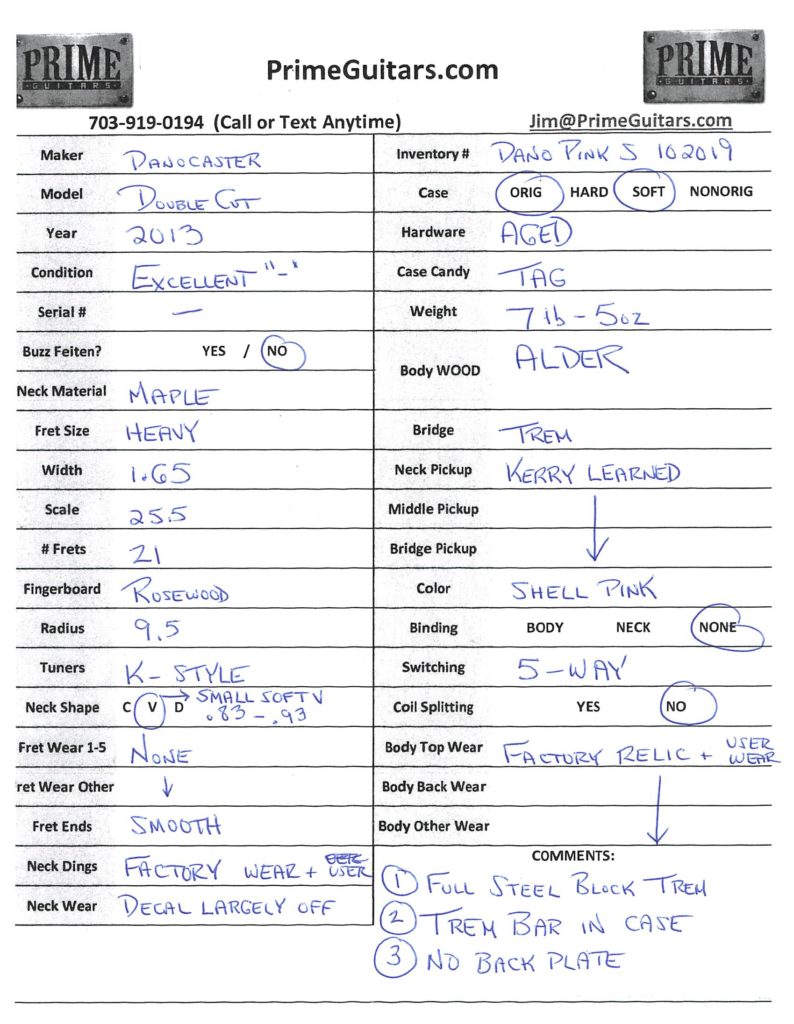 PRIME
GUITARS
PrimeGuitars.com
PRIME
GUITARS
703-919-0194 (Call or Text Anytime)
Jim@PrimeGuitars.com
Maker DANOCASTER
Model DOUBLE CUT
Year 2013
Condition EXCELLENT "-"
Serial # —
Buzz Feiten? YES / NO
Neck Material MAPLE
Fret Size HEAVY
Width 1.65
Scale 25.5
# Frets 21
Fingerboard ROSEWOOD
Radius 9.5
Tuners K-STYLE
Neck Shape C V D → SMALL SOFT V
.83-.93
Fret Wear 1-5 NONE
ret Wear Other ↓
Fret Ends SMOOTH
Neck Dings FACTORY WEAR + USER
Neck Wear DECAL LARGELY OFF
Inventory # DANO PINK S 102019
Case ORIG HARD SOFT NONORIG
Hardware AGED
Case Candy TAG
Weight 7 lb - 5oz
Body WOOD ALDER
Bridge TREM
Neck Pickup KERRY LEARNED
Middle Pickup
Bridge Pickup
Color SHELL PINK
Binding BODY NECK NONE
Switching 5-WAY
Coil Splitting YES NO
Body Top Wear FACTORY RELIC + USER WEAR
Body Back Wear
Body Other Wear
COMMENTS:
1 FULL STEEL BLOCK TREM
2 TREM BAR IN CASE
3 NO BACK PLATE